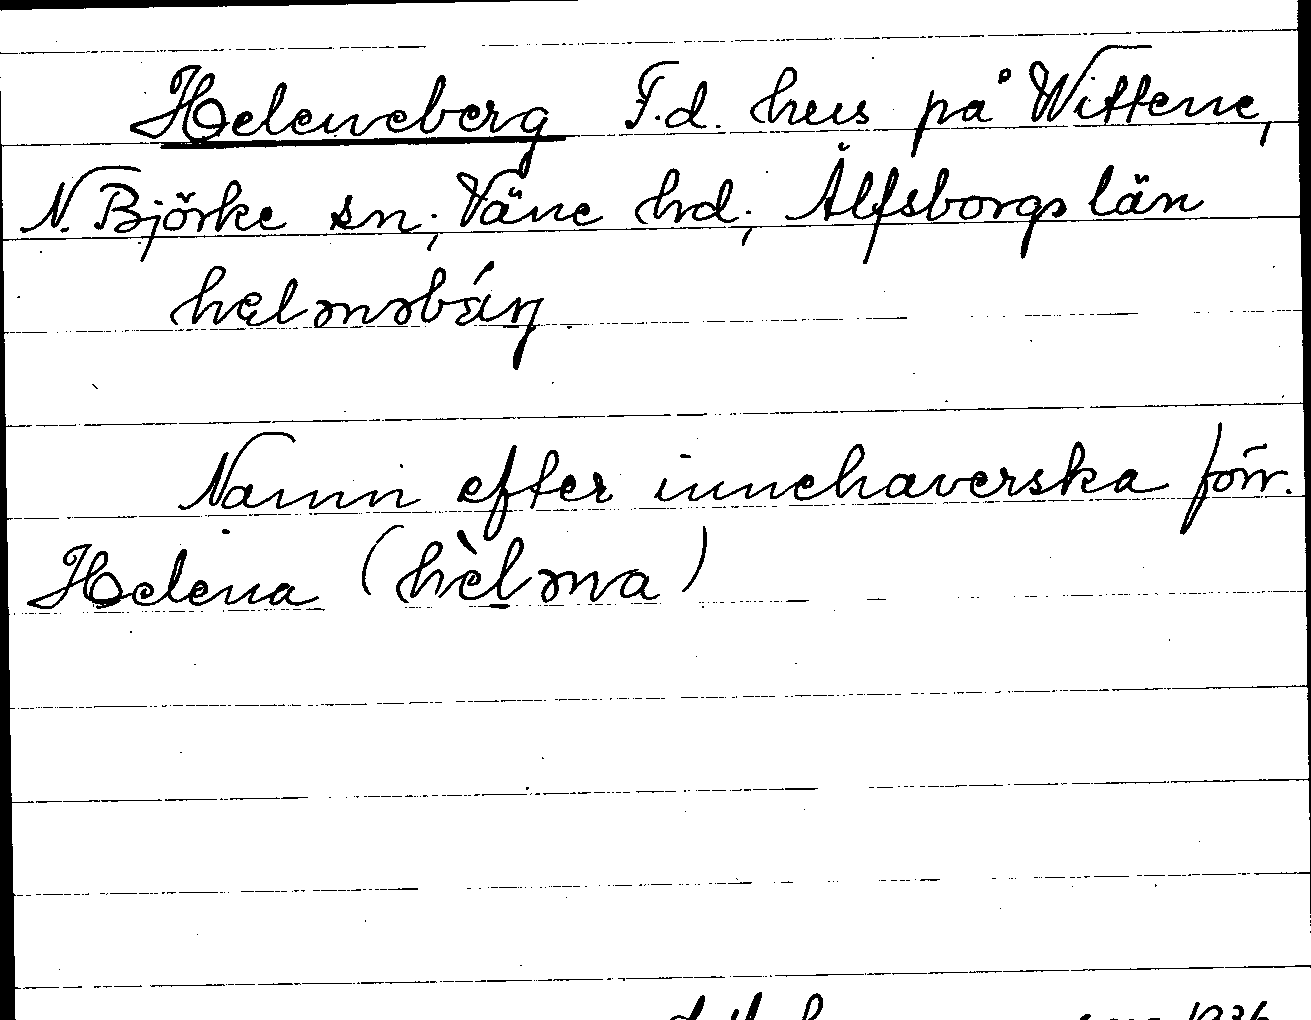 Heleneberg F.d. hus på Wittene,
N. Björke sn; Väne hd; Älfsborgs län
helənəbáŋ
Namn efter innehaverska förr.
Helena (hèləna)
1936